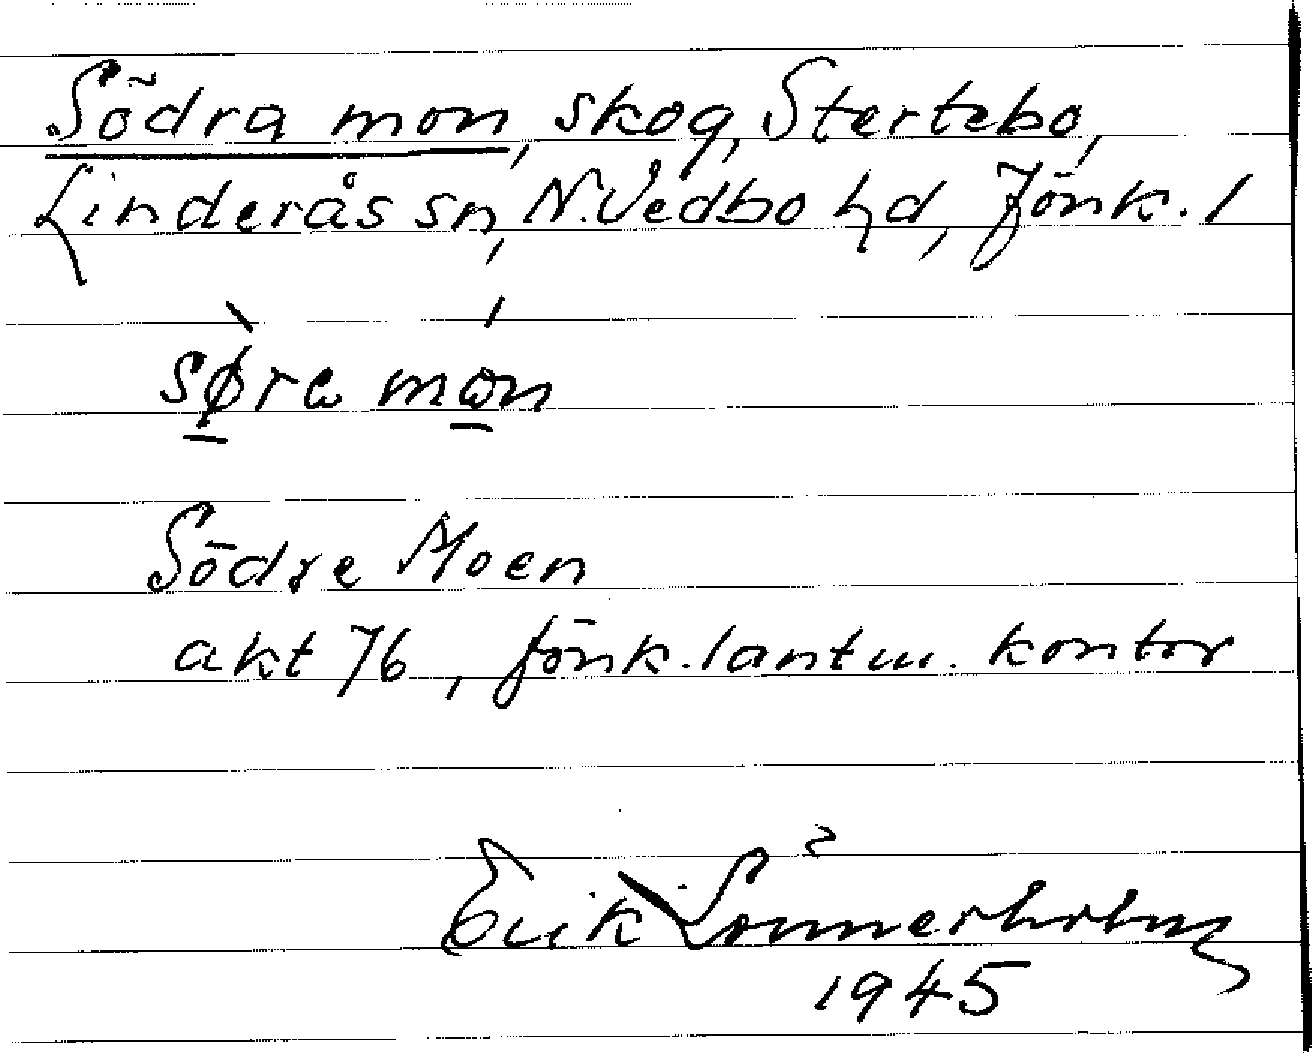 Södra mon, skog, Stertebo,
Linderås sn, N. Vedbo hd, Jönk. l
sø̀ra món
Södre Moen
akt 76, Jönk. lantm. kontor
Erik Lönnerholm
1945